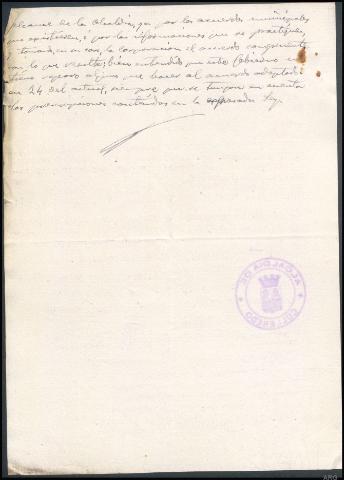 alcance de la Alcaldia, ya por los acuerdos municipales
que existiesen, ó por las informaciones que se practiquen,
tomará, en su caso, la corporación el acuerdo congruente
con lo que resulte; bien entendido que este Gobierno no
tiene reparo alguno que hacer al acuerdo adoptado
en 24 del actual, siempre que se tengan en cuenta
las prescripciones contenidas en la expresada ley.
ALCALDIA DE
CULLEREDO
ARG